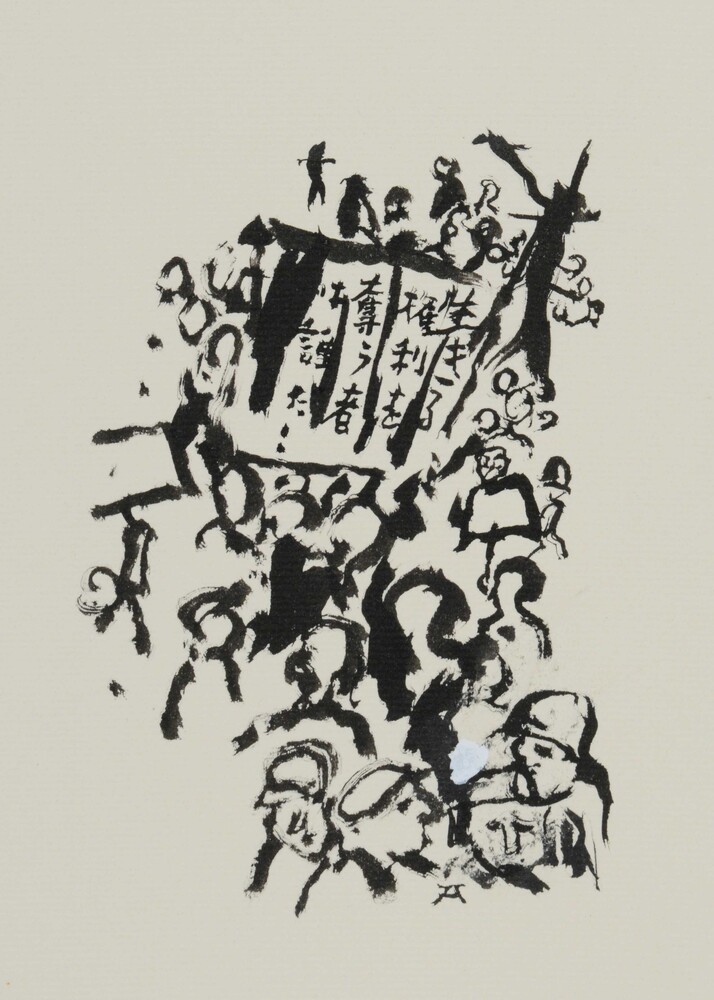 生きる
権利を
奪う者
は誰だ